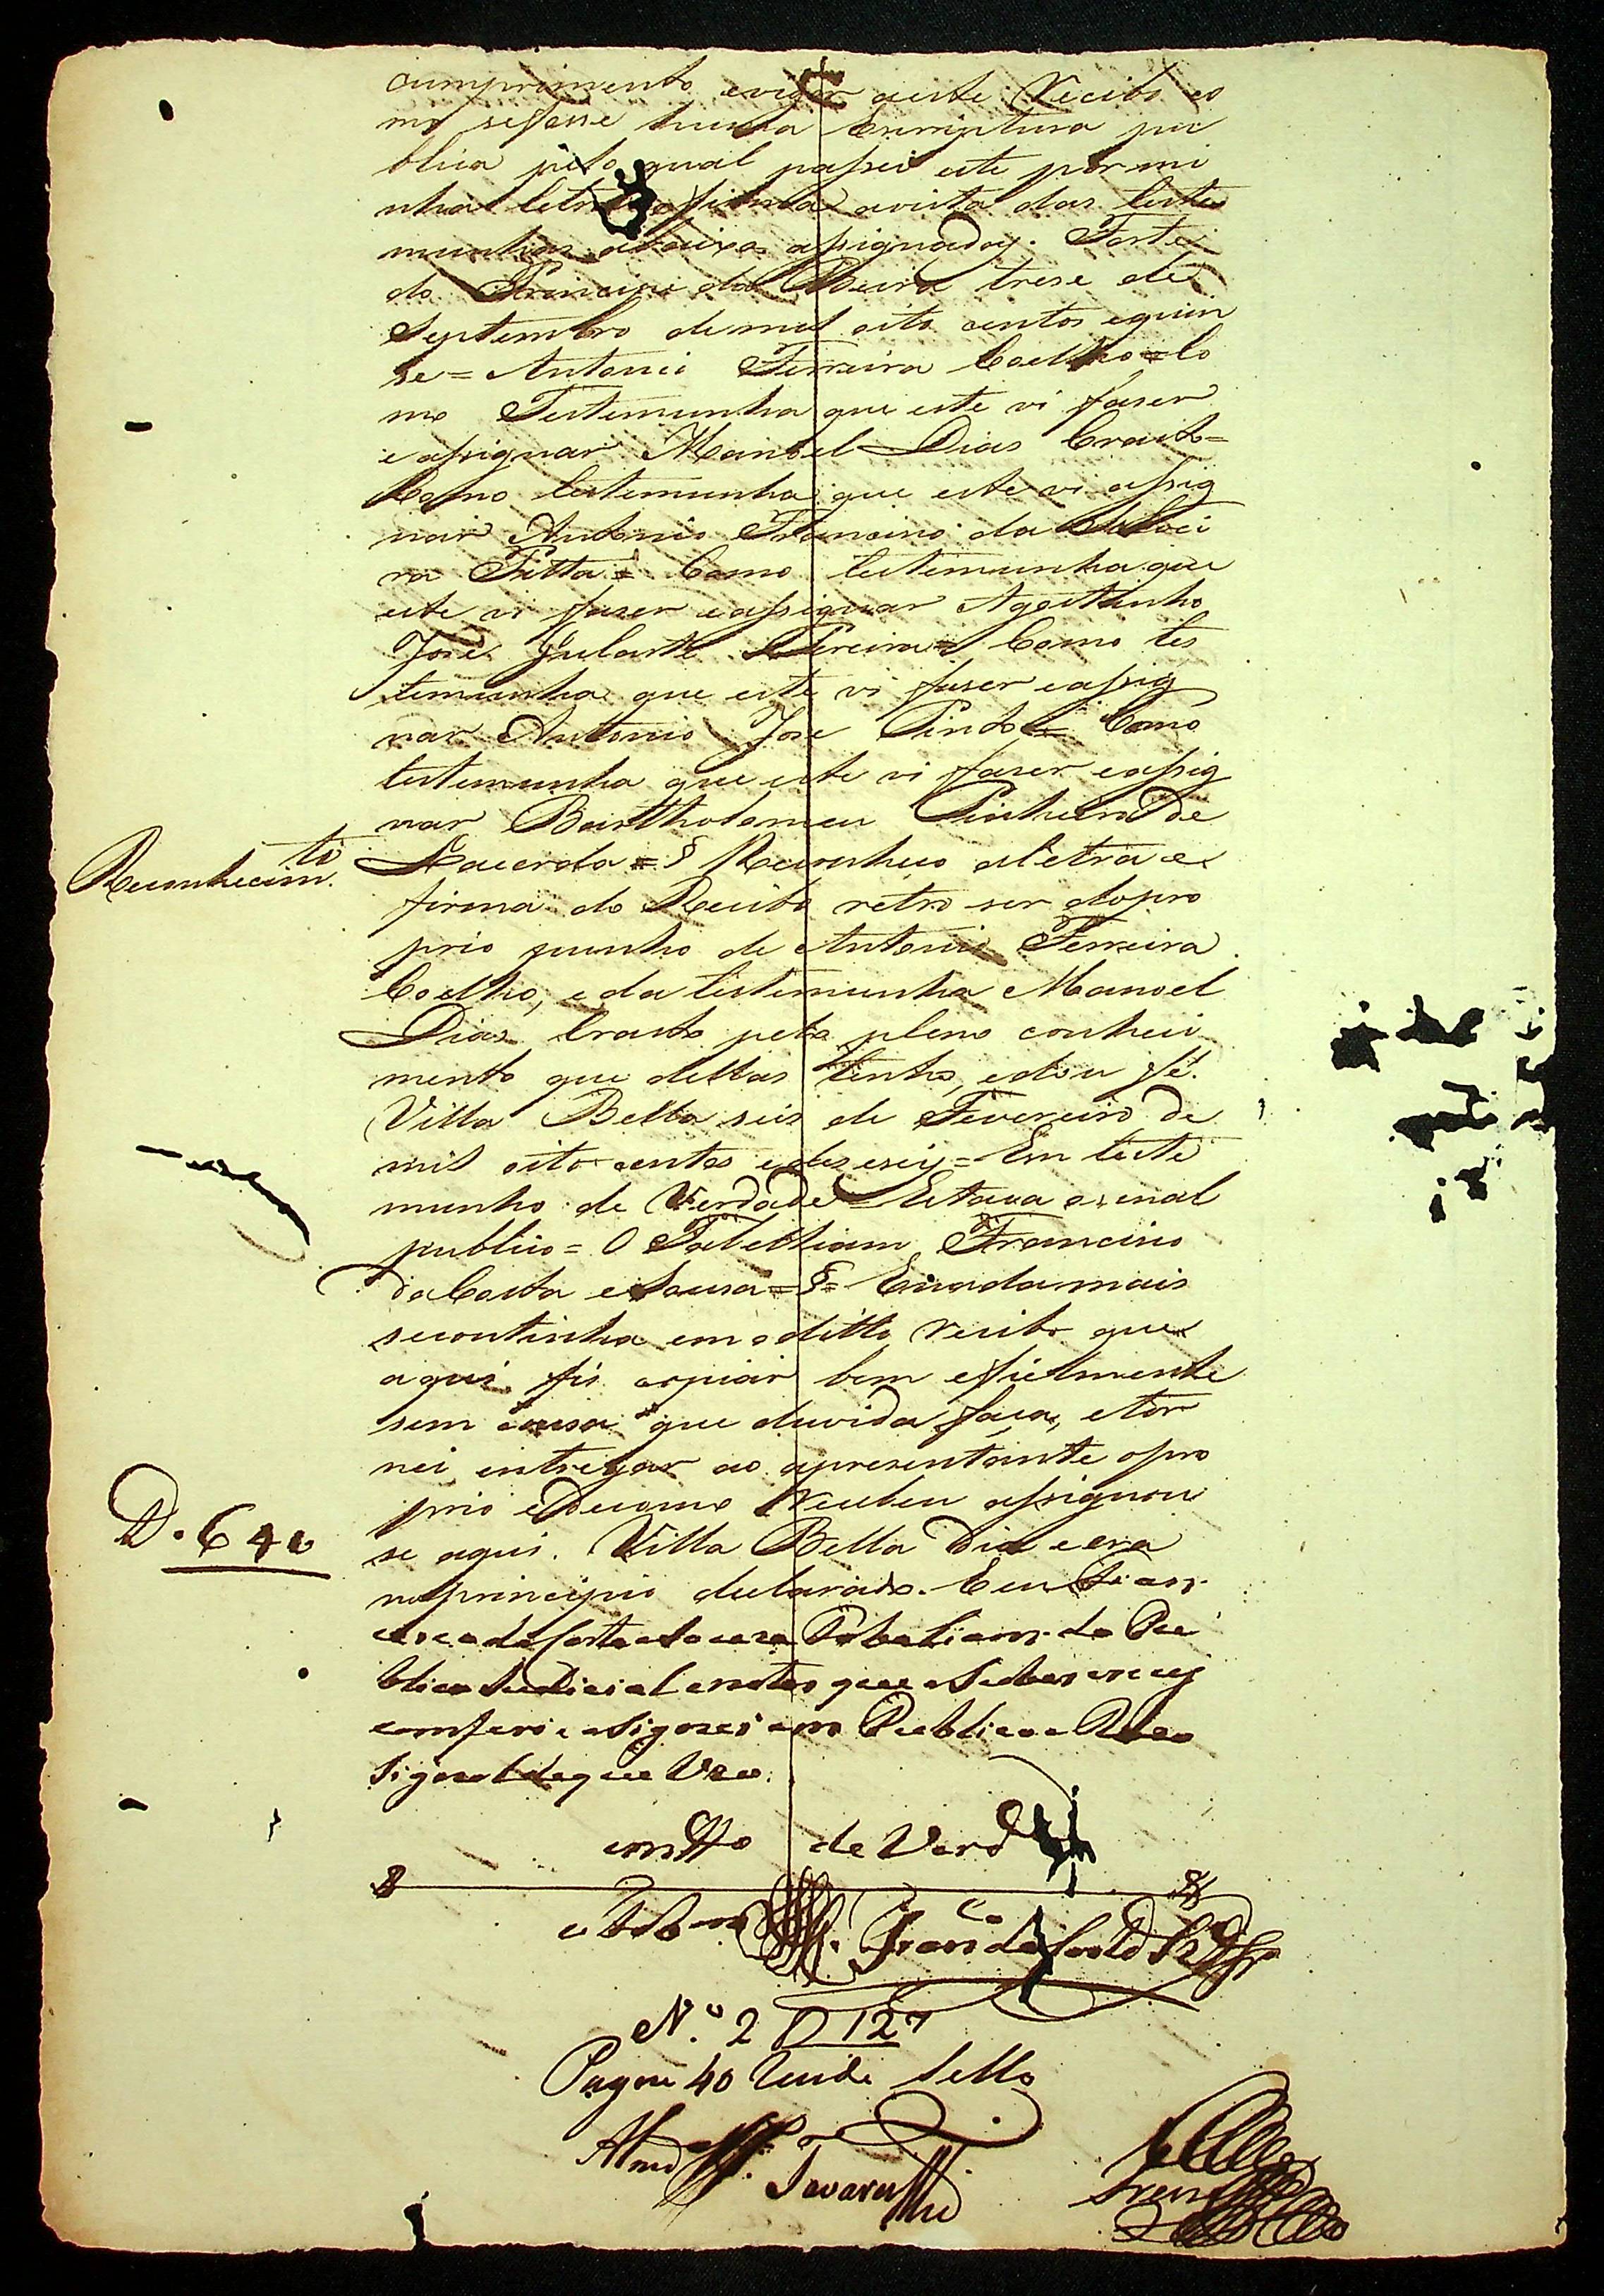 cumprimento evigor aeste Recibo co
mo sefosse huma Escriptura pu
blica pelo qual passei este por mi
nha letra efirma avista das teste
munhas abaixo assignadas. Forte
do Principe da Beira trese de
Septembro demil oito centos equin
se = Antonio Ferreira Coelho = Co
mo Testemunha que este vi faser
eassignar Manoel Dias Crasto =
Como testemunha que este vi assig
nar Antonio Francisco da
ra Pitta = Como testemunha que
este vi faser eassignar Agostinho
José Gularte Pereira = Como tes
temunha que este vi faser eassig
nar Antonio Jose Pinto = Como
testemunha que este vi faser eassig
nar Bartholomeu Pinheiro De
Lacerda = § Reconheço aletra e
Reconhecim.to
firma do Recibo retro ser dopro
prio punho de Antonio Ferreira
Coelho, e da testemunha Manoel
Dias Crasto pelo pleno conheci
mento que dellas tenho, edou fé.
Villa Bella seis de Fevereiro de
mil oito centos edeseseis = Em teste
munho de Verdade = Estava osinal
publico = O Tabelliam Francisco
da Costa e Sousa = § = Enadamais
secontinha em oditto recibo que
aqui fis copiar bem efielmente
sem cousa que duvida faça, etor
nei entregar ao apresentante opro
prio edecomo Recebeu assignou
se aqui. Villa Bella Dia eera
noprincipio declarado. Eeu Fran
cisco da Costa e Souza Tabaliam do Pu
blico Judicial enotas que oSubscrevy
comferi easignei em Publico e Raso
Signal deque Uzo.
D. 640
em tto de Verd
Fran.co da Costa
N.º 2 D 127
Pagou 40 reis de Sello
Tavares